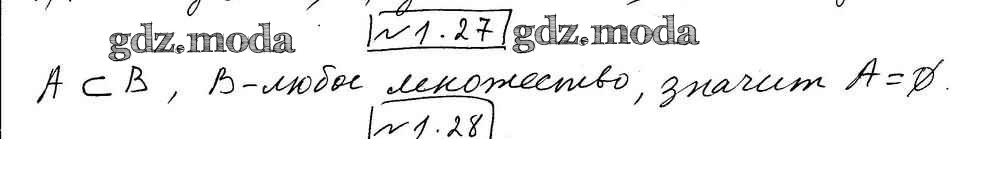 №1.27
gdz.moda gdz.moda
A ⊂ B, B-любое множество, значит A=∅.
№1.28